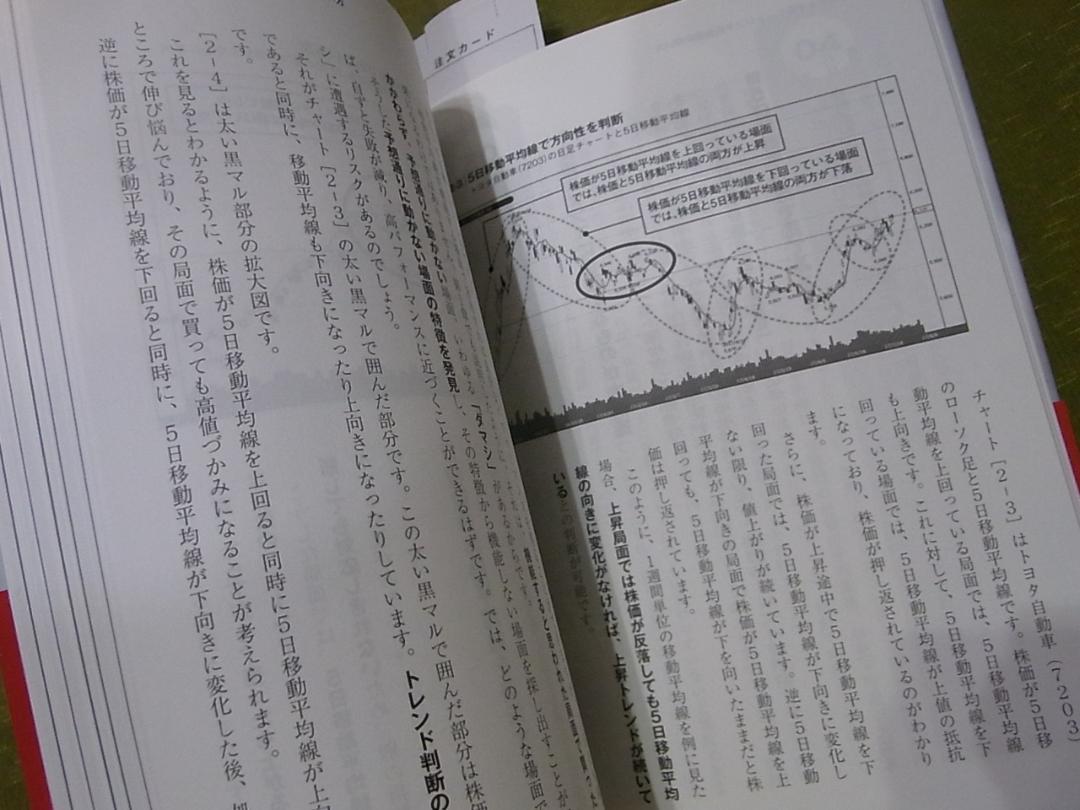 注文カード
5日移動平均線で方向性を判断
トヨタ自動車(7203)の日足チャートと5日移動平均線
株価が5日移動平均線を上回っている場面
では、株価と5日移動平均線の両方が上昇
株価が5日移動平均線を下回っている場面
では、株価と5日移動平均線の両方が下落
チャート[2-3]はトヨタ自動車(7203)
のローソク足と5日移動平均線です。株価が5日移
動平均線を上回っている局面では、5日移動平均線
も上向きです。これに対して、5日移動平均線を下
回っている場面では、5日移動平均線が上値の抵抗
になっており、株価が押し返されているのがわかり
ます。
さらに、株価が上昇途中で5日移動平均線を下
回った局面では、5日移動平均線が下向きに変化し
ない限り、値上がりが続いています。逆に5日移動
平均線が下向きの局面で株価が5日移動平均線を上
回っても、5日移動平均線が下を向いたままだと株
価は押し返されています。
このように、1週間単位の移動平均線を例に見た
場合、上昇局面では株価が反落しても5日移動平均
線の向きに変化がなければ、上昇トレンドが続いて
いるとの判断が可能です。
かかわらず、予想通りに動かない場面の特徴を発見し、その特徴から機能しない場面を探し出すことが
ば、自ずと失敗が減り、高パフォーマンスに近づくことができるはずです。では、どのような場面で
シ」に遭遇するリスクがあるのでしょう。
それがチャート[2-3]の太い黒マルで囲んだ部分です。この太い黒マルで囲んだ部分は株価
であると同時に、移動平均線も下向きになったり上向きになったりしています。トレンド判断の
です。
[2-4]は太い黒マル部分の拡大図です。
これを見るとわかるように、株価が5日移動平均線を上回ると同時に5日移動平均線が上向
ところで伸び悩んでおり、その局面で買っても高値づかみになることが考えられます。
逆に株価が5日移動平均線を下回ると同時に、5日移動平均線が下向きに変化した後、